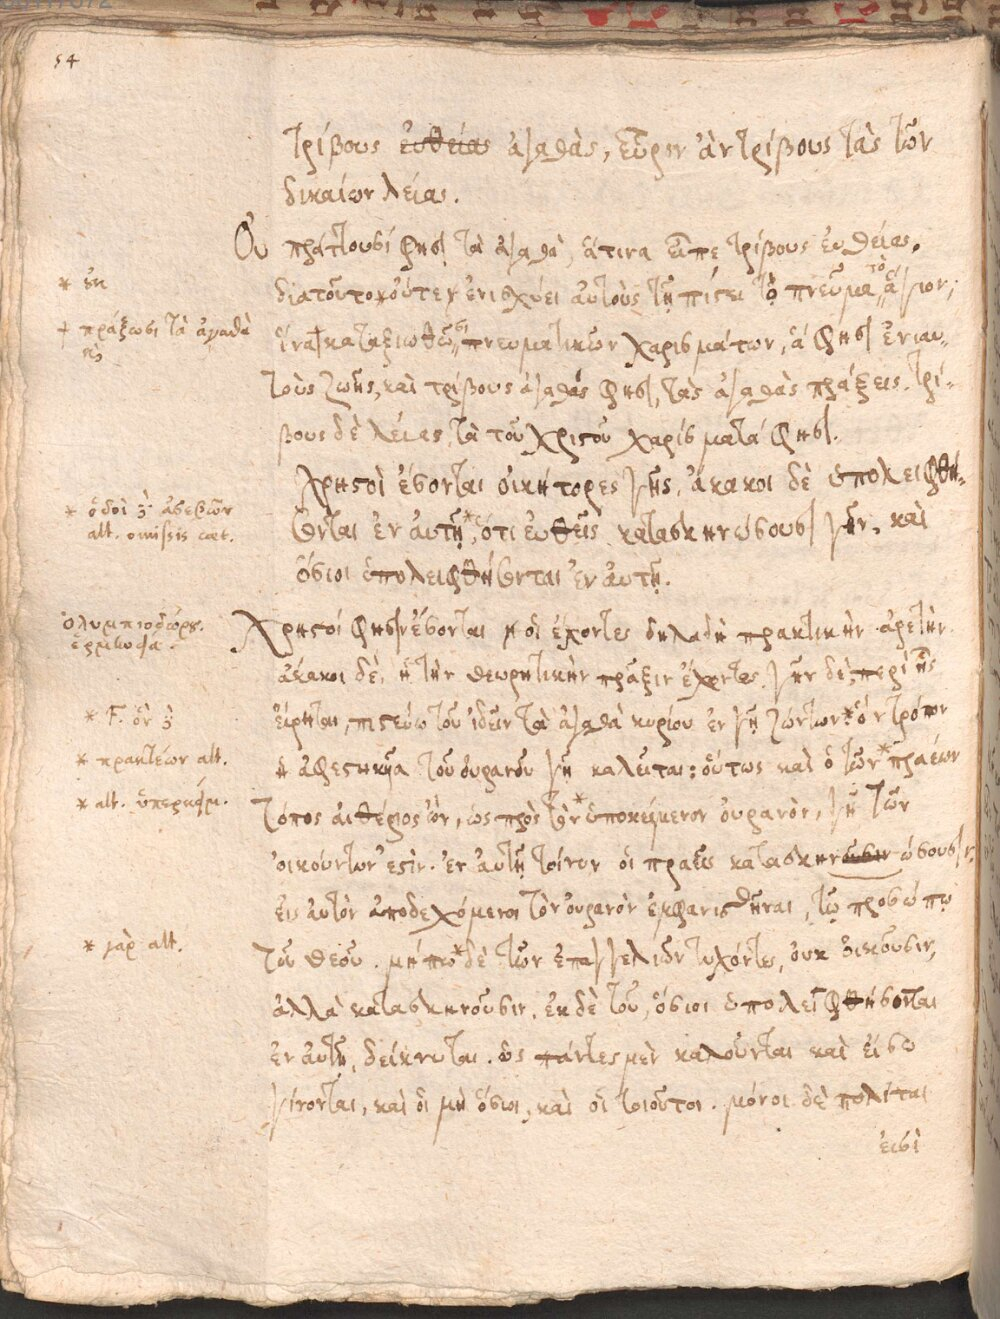 54
τρίβους εὐθείας ἀγαθὰς, εὗρον ἂν τρίβους τὰς τῶν
δικαίων λείας.
Οὐ πράττουσί φησὶ τὰ ἀγαθὰ, ἅτινα εἶπε τρίβους εὐθείας.
* ἐκ
διατοῦτο οὔτε ἐνισχύει αὐτοὺς τῇ πίστει τὸ πνεῦμα τὸ ἅγιον,
+ πράξωσι τὰ ἀγαθὰ
ἵνα + καταξιωθῶσι πνευματικῶν χαρισμάτων, ἅ φησὶ ἐνιαυ-
τοὺς ζωῆς, καὶ τρίβους ἀγαθάς φησὶ, τὰς ἀγαθὰς πράξεις. τρί-
βους δὲ λείας, τὰ τοῦ χριστοῦ χαρίσματά φησὶ.
χρηστοὶ ἔσονται οἰκήτορες γῆς, ἄκακοι δὲ ὑπολειφθή-
* ὁδοὶ ἀσεβῶν
alt. omissis cæt.
σονται ἐν αὐτῇ * ὅτι εὐθεῖς κατασκηνώσουσι γῆν, καὶ
ὅσιοι ὑπολειφθήσονται ἐν αὐτῇ.
Ὀλυμπιοδώρου.
Χρηστοί φησὶν ἔσονται οἱ ἔχοντες δηλαδὴ πρακτικὴν ἀρετὴν
ἄκακοι δὲ, ἢ τὴν θεωρητικὴν πρᾶξιν ἔχοντες. γῆν δὲ, περὶ ἧς
* F. ὃν
εἴρηται, πιστεύω τοῦ ἰδεῖν τὰ ἀγαθὰ κυρίου ἐν γῇ ζώντων * ὃν τρόπον
* πρακτέων alt.
ἡ ἀφεστηκυῖα τοῦ οὐρανοῦ γῆ καλεῖται: οὕτως καὶ ὁ τῶν * πραέων
* alt. ὑπερκείμ.
τόπος αἰθέριος ὢν, ὡς πρὸς τὸν * ὑποκείμενον οὐρανὸν, γῆ τῶν
οἰκούντων ἐστίν. ἐν αὐτῇ τοίνυν οἱ πραεῖς κατασκηνοῦσιν ώσουσιν,
εἰς αὐτὸν ἀποδεχόμενοι τὸν οὐρανὸν ἐμφανισθῆναι, τῷ προσώπῳ
* γὰρ alt.
τοῦ θεοῦ. μήπω * δὲ τῶν ἐπαγγελιῶν τυχόντες, οὐκ οἰκοῦσιν,
ἀλλὰ κατασκηνοῦσιν. ἐκ δὲ τοῦ, ὅσιοι ὑπολειφθήσονται
ἐν αὐτῇ, δείκνυται. ὡς πάντες μὲν καλοῦνται καὶ εἴσω
γίνονται, καὶ οἱ μὴ ὅσιοι, καὶ οἱ τοιοῦτοι. μόνοι δὲ πολῖται
εἰσὶ